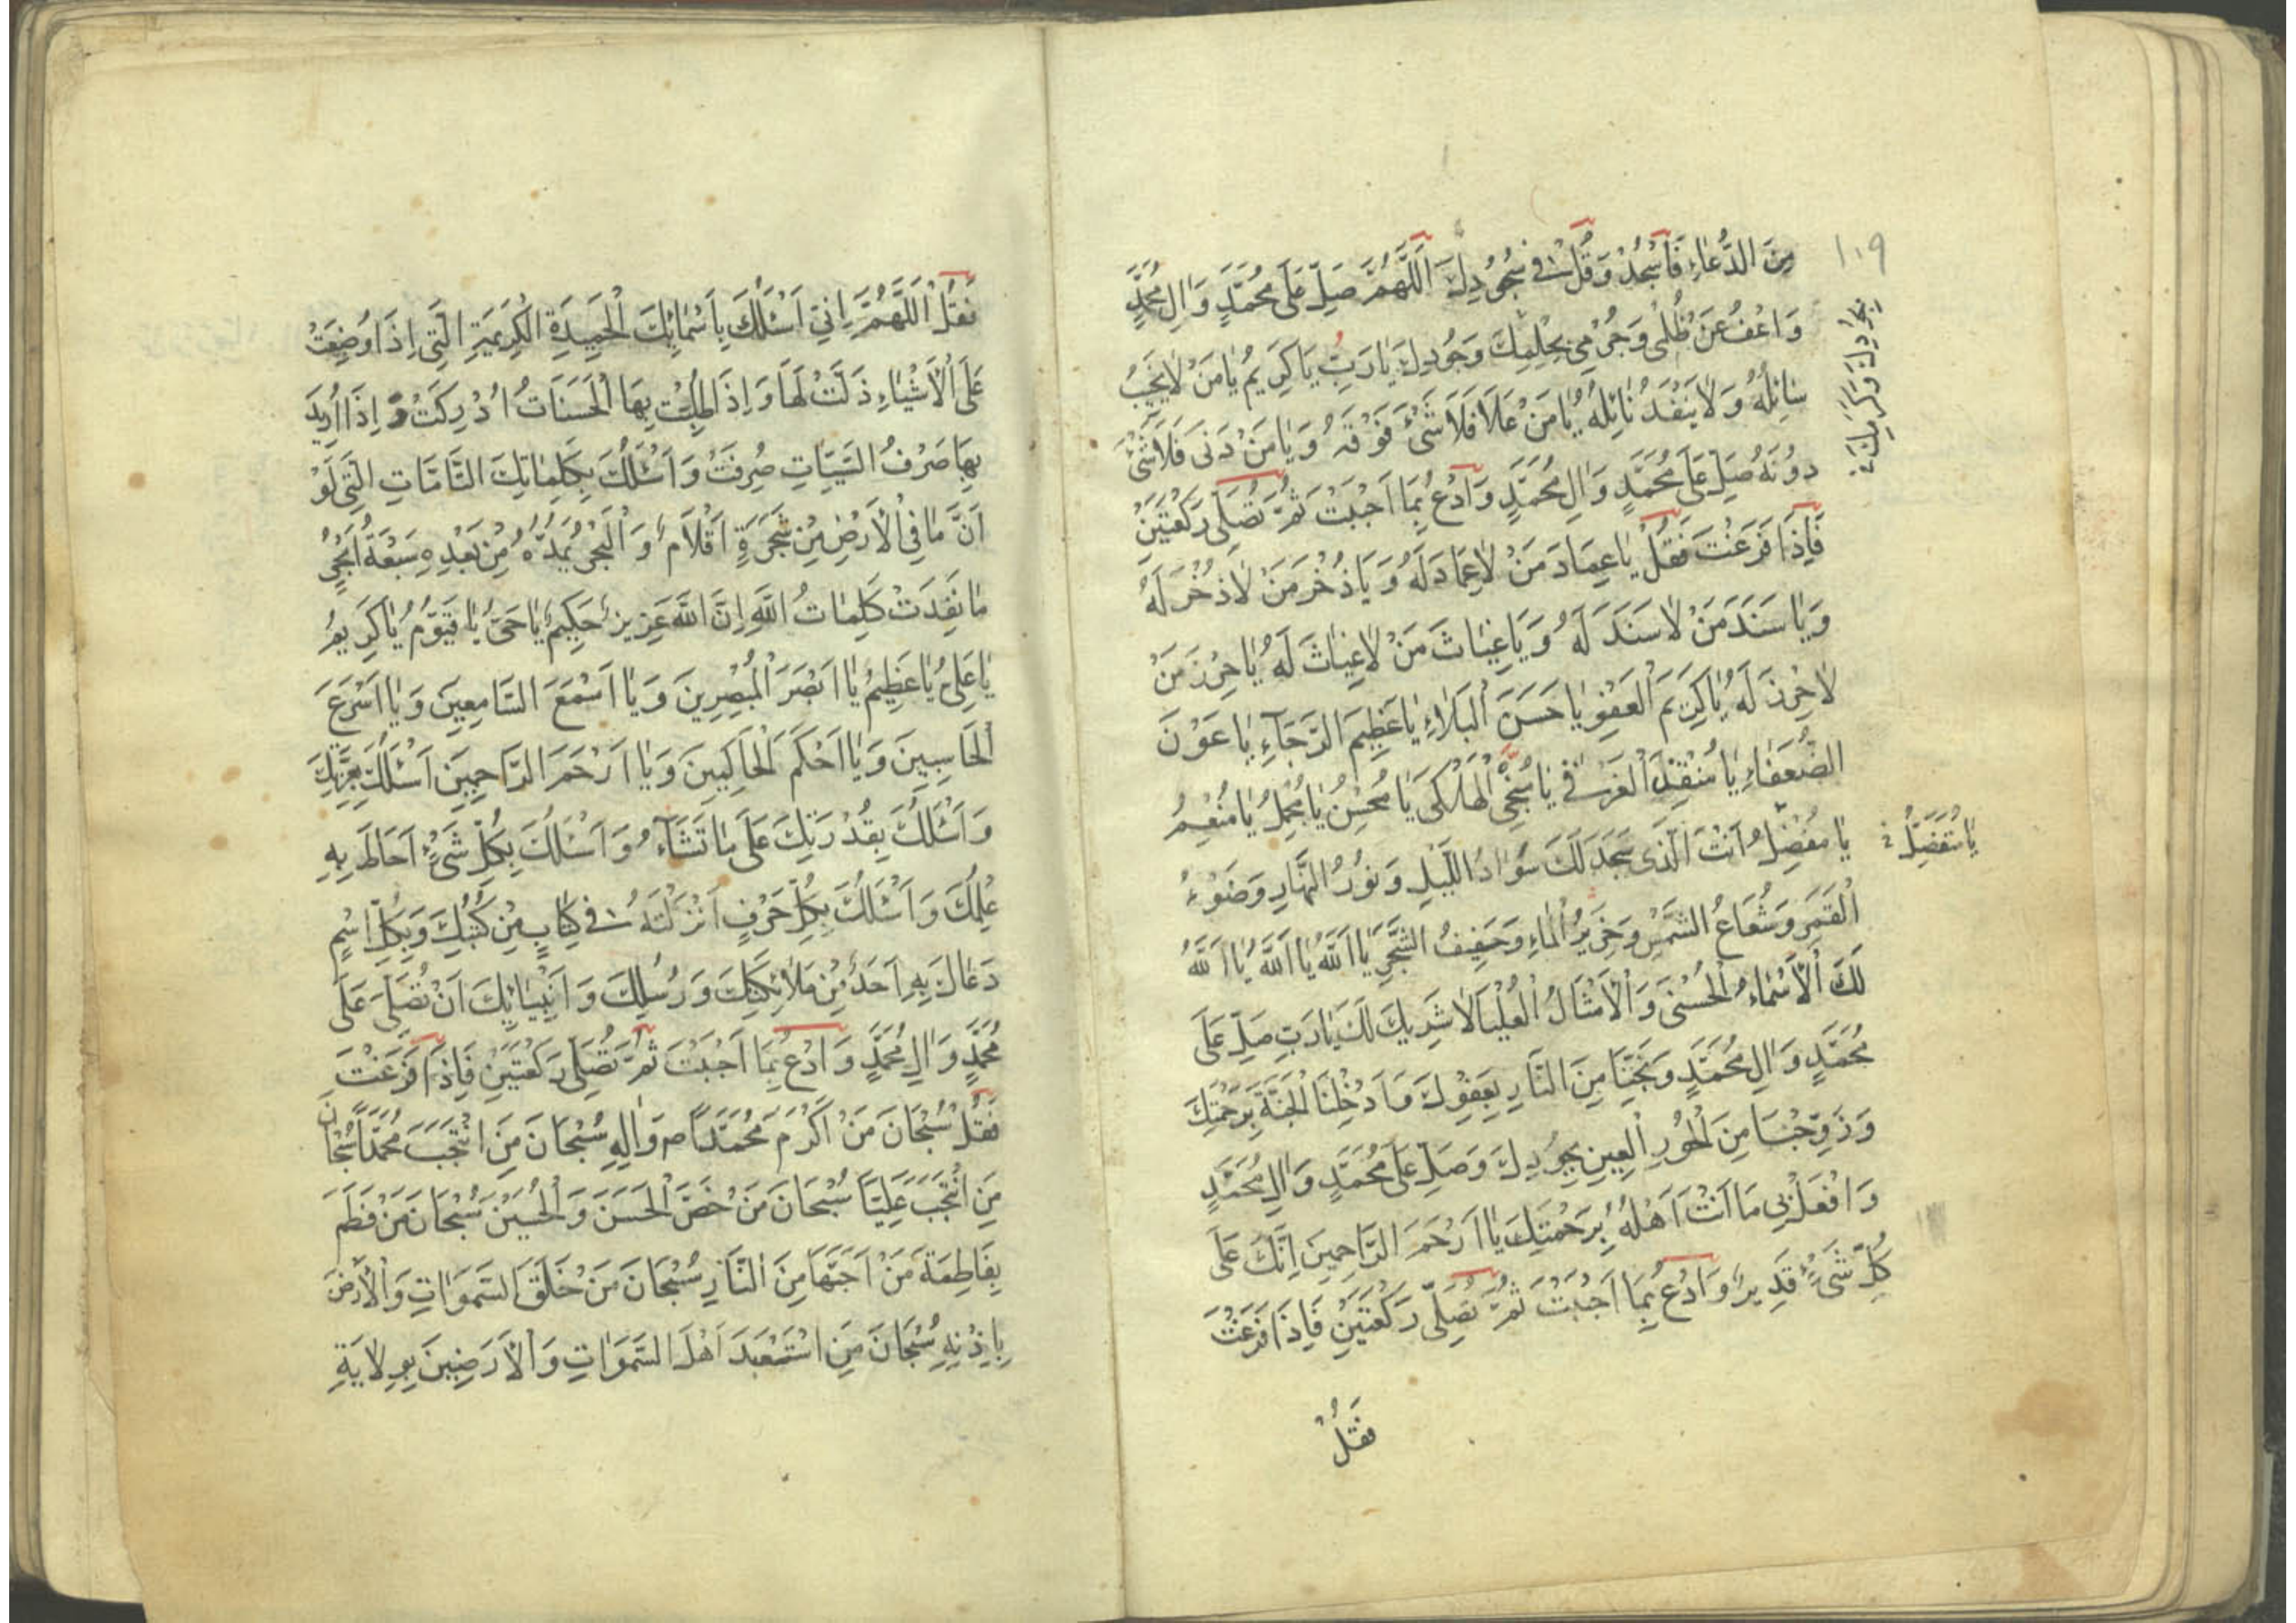 ١٠٩
مِنَ الدُّعَاءِ فَاسْجُدْ وَقُلْ فِي سُجُودِكَ اَللّٰهُمَّ صَلِّ عَلَى مُحَمَّدٍ وَاٰلِ مُحَمَّدٍ
وَاعْفُ عَنْ ظُلْمِي وَجُرْمِي بِحِلْمِكَ وَجُودِكَ يَا رَبِّ يَا كَرِيمُ يَا مَنْ لَا يَخِيبُ
سَائِلُهُ وَلَا يَنْفَدُ نَائِلُهُ يَا مَنْ عَلَا فَلَا شَيْءَ فَوْقَهُ وَيَا مَنْ دَنَى فَلَا شَيْءَ
دُونَهُ صَلِّ عَلَى مُحَمَّدٍ وَاٰلِ مُحَمَّدٍ وَادْعُ بِمَا اَحْبَبْتَ ثُمَّ تُصَلِّي رَكْعَتَيْنِ
فَاِذَا فَرَغْتَ فَقُلْ يَا عِمَادَ مَنْ لَا عِمَادَ لَهُ وَيَا ذُخْرَ مَنْ لَا ذُخْرَ لَهُ
وَيَا سَنَدَ مَنْ لَا سَنَدَ لَهُ وَيَا غِيَاثَ مَنْ لَا غِيَاثَ لَهُ يَا حِرْزَ مَنْ
لَا حِرْزَ لَهُ يَا كَرِيمَ الْعَفْوِ يَا حَسَنَ الْبَلَاءِ يَا عَظِيمَ الرَّجَاءِ يَا عَوْنَ
الضُّعَفَاءِ يَا مُنْقِذَ الْغَرْقٰى يَا مُنْجِيَ الْهَلْكٰى يَا مُحْسِنُ يَا مُجْمِلُ يَا مُنْعِمُ
يَا مُفْضِلُ اَنْتَ الَّذِي سَجَدَ لَكَ سَوَادُ اللَّيْلِ وَنُورُ النَّهَارِ وَضَوْءُ
يَا مُتَفَضِّلُ
الْقَمَرِ وَشُعَاعُ الشَّمْسِ وَخَرِيرُ الْمَاءِ وَحَفِيفُ الشَّجَرِ يَا اَللّٰهُ يَا اَللّٰهُ يَا اَللّٰهُ
لَكَ الْاَسْمَاءُ الْحُسْنٰى وَالْاَمْثَالُ الْعُلْيَا لَا شَرِيكَ لَكَ يَا رَبِّ صَلِّ عَلَى
مُحَمَّدٍ وَاٰلِ مُحَمَّدٍ وَنَجِّنَا مِنَ النَّارِ بِعَفْوِكَ وَاَدْخِلْنَا الْجَنَّةَ بِرَحْمَتِكَ
وَزَوِّجْنَا مِنَ الْحُورِ الْعِينِ بِجُودِكَ وَصَلِّ عَلَى مُحَمَّدٍ وَاٰلِ مُحَمَّدٍ
وَافْعَلْ بِي مَا اَنْتَ اَهْلُهُ بِرَحْمَتِكَ يَا اَرْحَمَ الرَّاحِمِينَ اِنَّكَ عَلَى
كُلِّ شَيْءٍ قَدِيرٌ وَادْعُ بِمَا اَحْبَبْتَ ثُمَّ تُصَلِّي رَكْعَتَيْنِ فَاِذَا فَرَغْتَ
فَقُلْ
فَقُلْ اَللّٰهُمَّ اِنِّي اَسْئَلُكَ بِاَسْمَائِكَ الْحَمِيدَةِ الْكَرِيمَةِ الَّتِي اِذَا وُضِعَتْ
عَلَى الْاَشْيَاءِ ذَلَّتْ لَهَا وَاِذَا طُلِبَتْ بِهَا الْحَسَنَاتُ اُدْرِكَتْ وَ اِذَا اُرِيدَ
بِهَا صَرْفُ السَّيِّئَاتِ صُرِفَتْ وَاَسْئَلُكَ بِكَلِمَاتِكَ التَّامَّاتِ الَّتِي لَوْ
اَنَّ مَا فِي الْاَرْضِ مِنْ شَجَرَةٍ اَقْلَامٌ وَالْبَحْرُ يَمُدُّهُ مِنْ بَعْدِهِ سَبْعَةُ اَبْحُرٍ
مَا نَفِدَتْ كَلِمَاتُ اللّٰهِ اِنَّ اللّٰهَ عَزِيزٌ حَكِيمٌ يَا حَيُّ يَا قَيُّومُ يَا كَرِيمُ
يَا عَلِيُّ يَا عَظِيمُ يَا اَبْصَرَ الْمُبْصِرِينَ وَيَا اَسْمَعَ السَّامِعِينَ وَيَا اَسْرَعَ
الْحَاسِبِينَ وَيَا اَحْكَمَ الْحَاكِمِينَ وَيَا اَرْحَمَ الرَّاحِمِينَ اَسْئَلُكَ بِعِزَّتِكَ
وَاَسْئَلُكَ بِقُدْرَتِكَ عَلَى مَا تَشَاءُ وَاَسْئَلُكَ بِكُلِّ شَيْءٍ اَحَاطَ بِهِ
عِلْمُكَ وَاَسْئَلُكَ بِكُلِّ حَرْفٍ اَنْزَلْتَهُ فِي كِتَابٍ مِنْ كُتُبِكَ وَبِكُلِّ اسْمٍ
دَعَاكَ بِهِ اَحَدٌ مِنْ مَلَائِكَتِكَ وَرُسُلِكَ وَاَنْبِيَائِكَ اَنْ تُصَلِّيَ عَلَى
مُحَمَّدٍ وَاٰلِ مُحَمَّدٍ وَادْعُ بِمَا اَحْبَبْتَ ثُمَّ تُصَلِّي رَكْعَتَيْنِ فَاِذَا فَرَغْتَ
فَقُلْ سُبْحَانَ مَنْ اَكْرَمَ مُحَمَّدًا ص وَاٰلِهِ سُبْحَانَ مَنِ انْتَجَبَ مُحَمَّدًا سُبْحَانَ
مَنِ انْتَجَبَ عَلِيًّا سُبْحَانَ مَنْ خَصَّ الْحَسَنَ وَالْحُسَيْنَ سُبْحَانَ مَنْ فَطَمَ
بِفَاطِمَةَ مَنْ اَحَبَّهَا مِنَ النَّارِ سُبْحَانَ مَنْ خَلَقَ السَّمَوَاتِ وَالْاَرْضَ
بِاِذْنِهِ سُبْحَانَ مَنِ اسْتَعْبَدَ اَهْلَ السَّمَوَاتِ وَالْاَرَضِينَ بِوِلَايَةِ